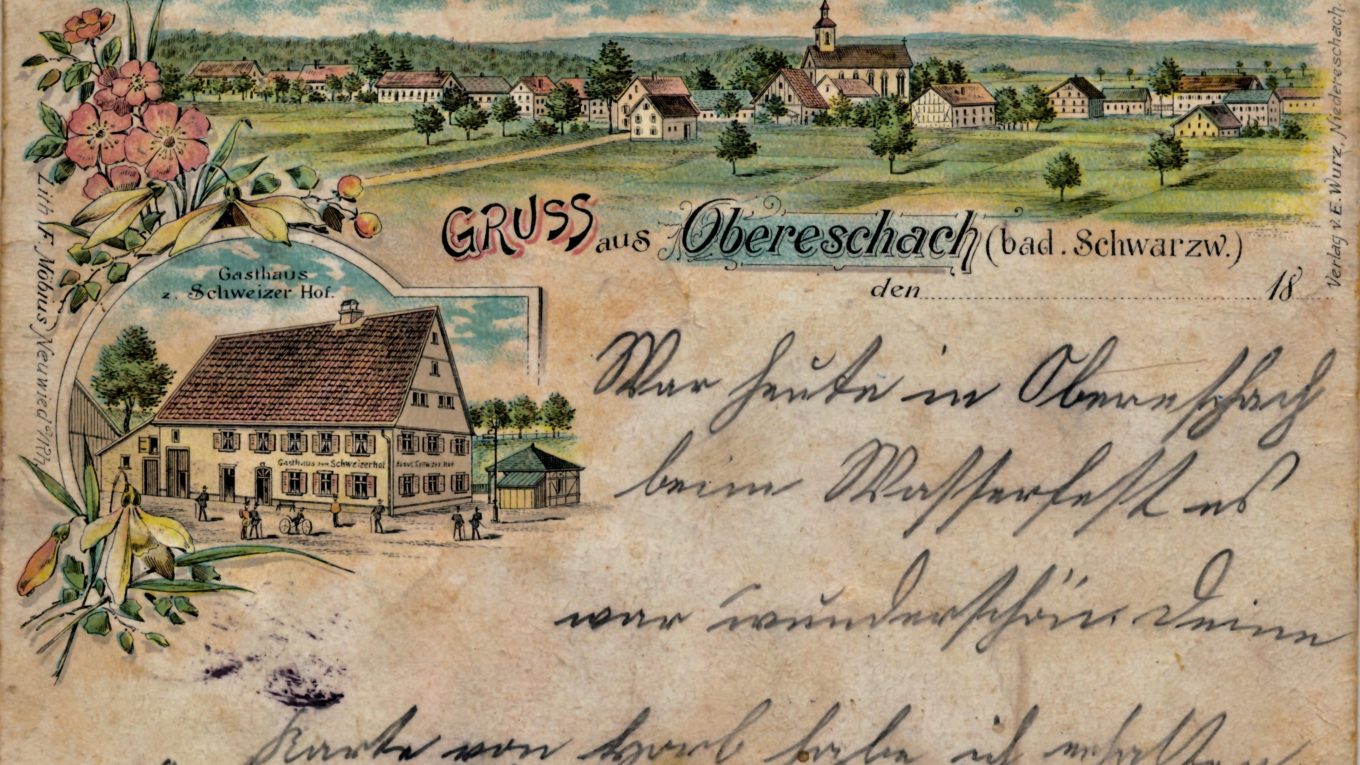 GRUSS aus Obereschach (bad. Schwarzw.)
den 18
Gasthaus
z. Schweizer Hof.
Gasthaus zum Schweizerhof
Lith. F. Möbius, Neuwied
Verlag v. E. Wurz, Niedereschach.
War heute in Obereschach
beim Wasserfest es
war wunderschön. Deine
Karte von Horb habe ich erhalten